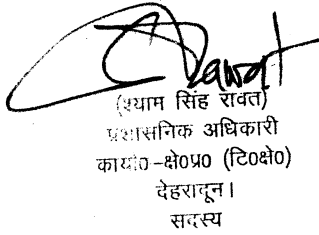 Rawat
(श्याम सिंह रावत)
प्रशासनिक अधिकारी
कार्या०-क्षे०प्र० (टि०क्षे०)
देहरादून।
सदस्य